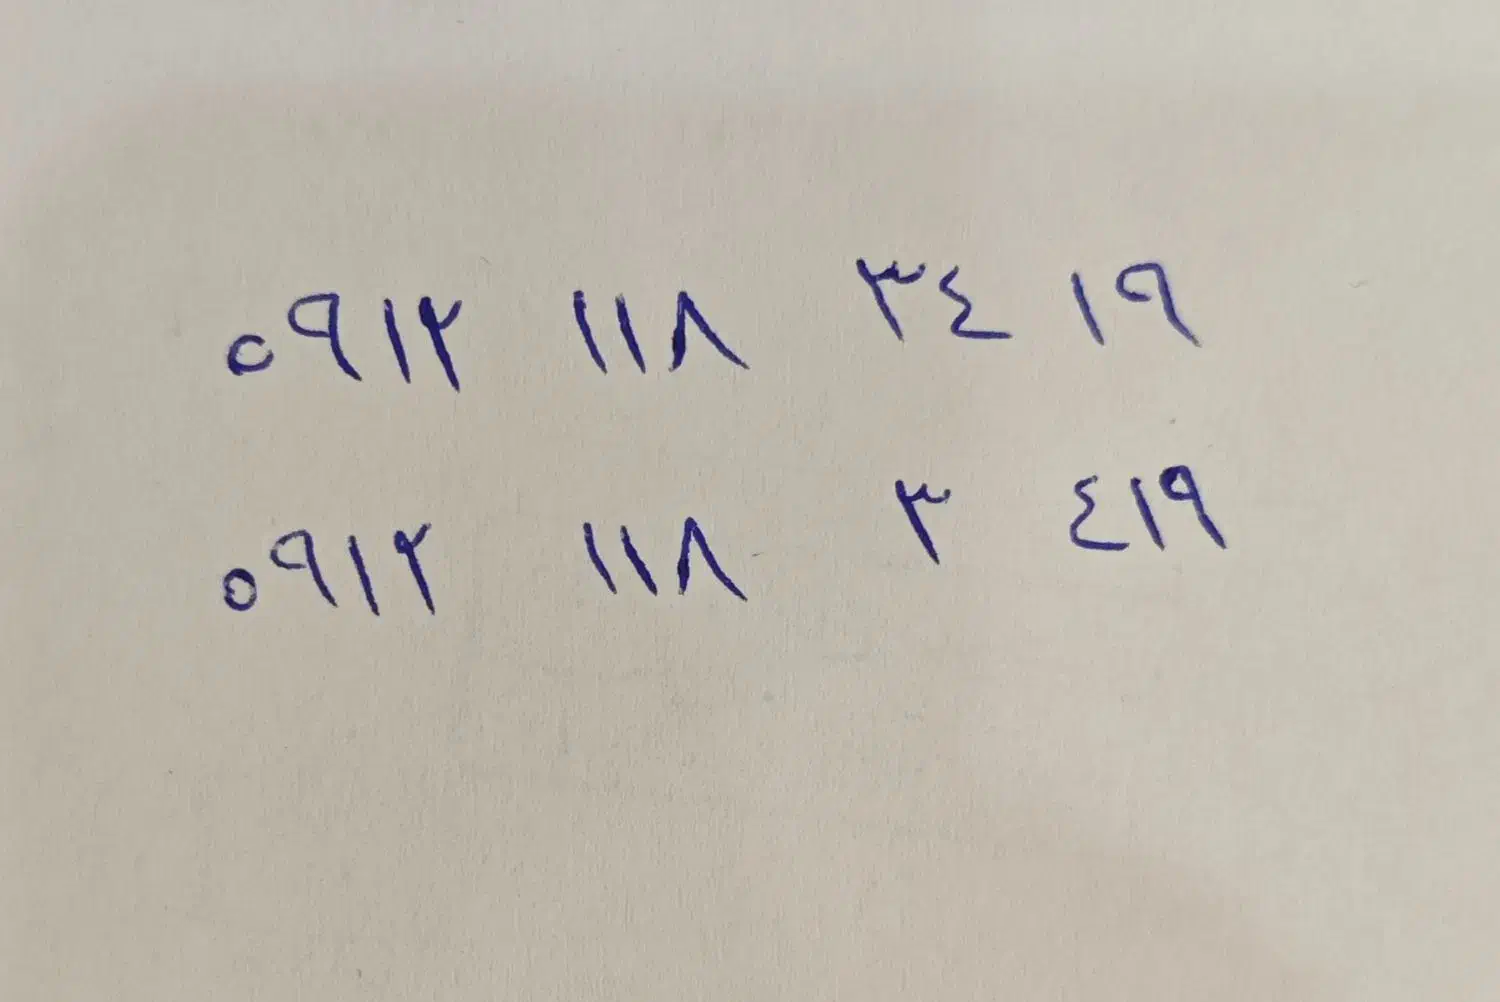 ۰۹۱۲ ۱۱۸ ۳٤ ۱۹
۰۹۱۲ ۱۱۸ ۳ ٤۱۹